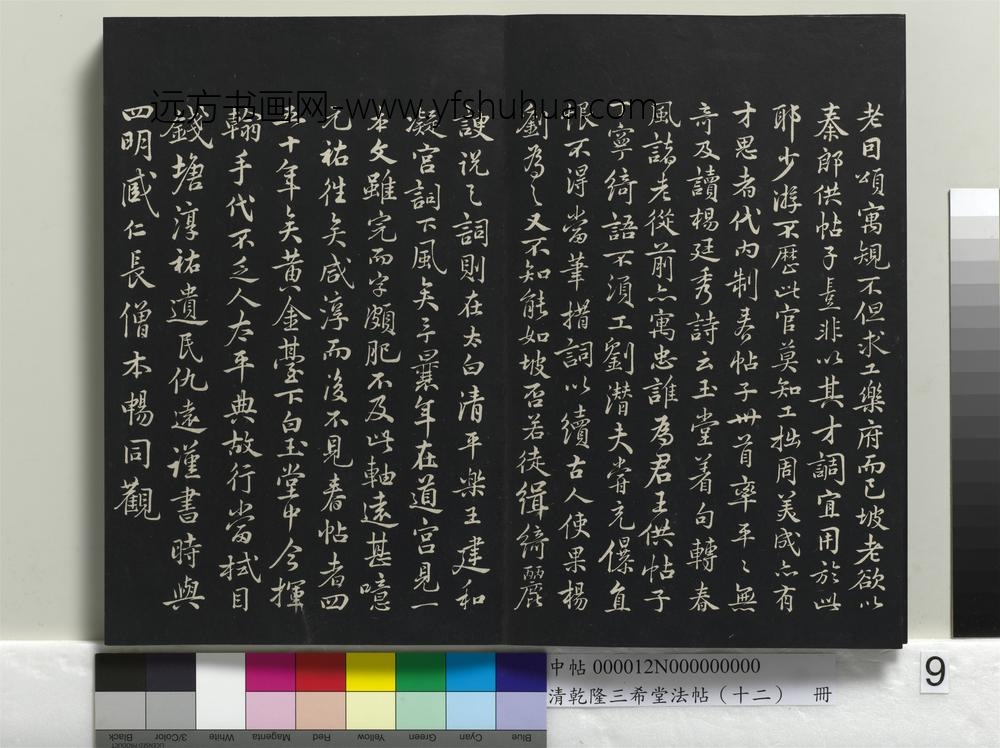 老因頌寓規不但求工樂府而已坡老欲以
秦郎供帖子豈非以其才調宜用於此
耶少游不歷此官莫知工拙周美成亦有
才思者代內制春帖子卅首率平〻無
奇及讀楊廷秀詩云玉堂着句轉春
風諸老從前亦寓忠誰為君王供帖子
丁寧綺語不須工劉潛夫嘗充儤直
恨不得當筆措詞以續古人使果楊
劉為之又不知能如坡否若徒緝綺麗
諛說之詞則在太白清平樂王建和
凝宮詞下風矣予曩年在道宮見一
本文雖完而字頗肥不及此軸遠甚噫
元祐往矣咸淳而後不見春帖者四
十年矣黃金臺下白玉堂中今揮
翰手代不乏人太平典故行當拭目
錢塘淳祐遺民仇遠謹書時與
四明臧仁長僧本暢同觀
远方书画网-www.yfshuhua.com
中帖 000012N000000000
清乾隆三希堂法帖（十二） 冊
9
Black
3/Color
White
Magenta
Red
Yellow
Green
Cyan
Blue